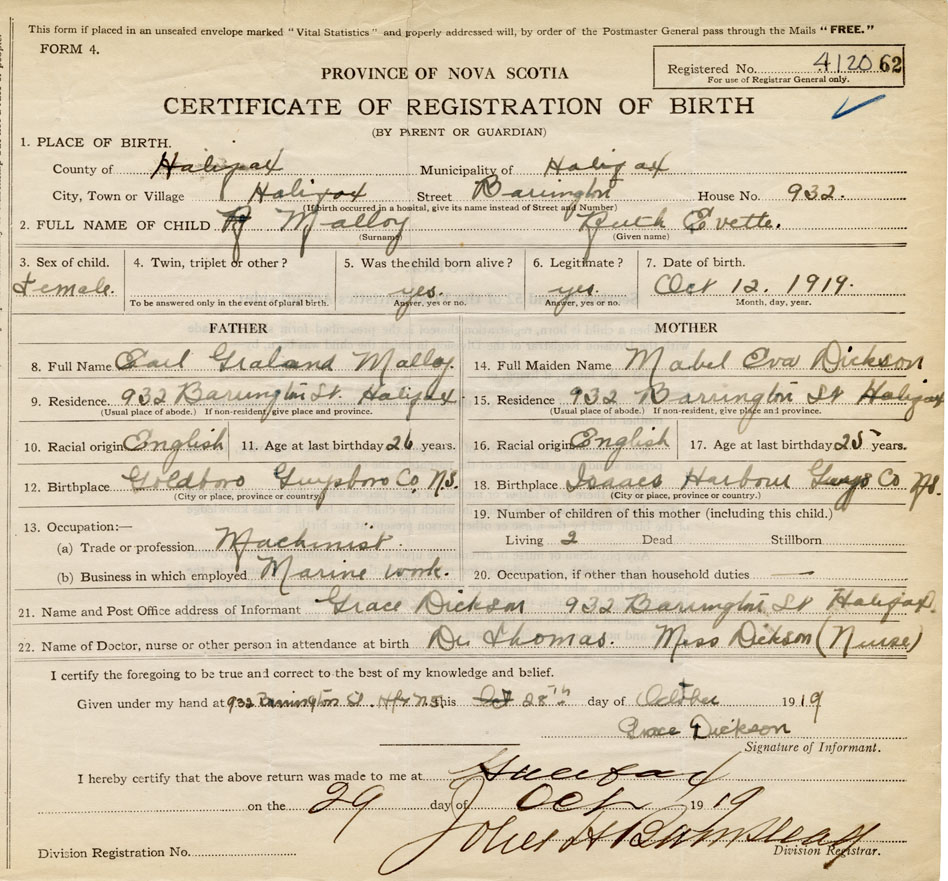 This form if placed in an unsealed envelope marked "Vital Statistics" and properly addressed will, by order of the Postmaster General pass through the Mails "FREE."
FORM 4.
Registered No. 4120 62
For use of Registrar General only.
PROVINCE OF NOVA SCOTIA
CERTIFICATE OF REGISTRATION OF BIRTH
(BY PARENT OR GUARDIAN)
1. PLACE OF BIRTH.
County of Halifax Municipality of Halifax
City, Town or Village Halifax Street Barrington House No. 932.
(If birth occurred in a hospital, give its name instead of Street and Number)
2. FULL NAME OF CHILD Malloy Ruth Evette.
(Surname) (Given name)
3. Sex of child. 4. Twin, triplet or other? 5. Was the child born alive? 6. Legitimate? 7. Date of birth.
Female. yes. yes. Oct 12. 1919.
To be answered only in the event of plural birth. Answer, yes or no. Answer, yes or no. Month, day, year.
FATHER MOTHER
8. Full Name Earl Graland Malloy. 14. Full Maiden Name Mabel Eva Dickson
9. Residence. 932 Barrington St. Halifax 15. Residence 932 Barrington St Halifax
(Usual place of abode.) If non-resident, give place and province. (Usual place of abode.) If non-resident, give place and province.
10. Racial origin English 11. Age at last birthday 26 years. 16. Racial origin English 17. Age at last birthday 25 years.
12. Birthplace Goldboro Guysboro Co, N.S. 18. Birthplace Isaacs Harbour Guys Co N.S.
(City or place, province or country.) (City or place, province or country.)
19. Number of children of this mother (including this child.)
13. Occupation:—
(a) Trade or profession Machinist. Living 2 Dead Stillborn
(b) Business in which employed Marine work. 20. Occupation, if other than household duties —
21. Name and Post Office address of Informant Grace Dickson 932 Barrington St Halifax.
22. Name of Doctor, nurse or other person in attendance at birth Dr Thomas. Miss Dickson (Nurse)
I certify the foregoing to be true and correct to the best of my knowledge and belief.
Given under my hand at 932 Barrington St. Hfx N.S. this 28th day of October 1919
Grace Dickson
Signature of Informant.
I hereby certify that the above return was made to me at Halifax
on the 29 day of Oct 1919
Division Registration No. Division Registrar.